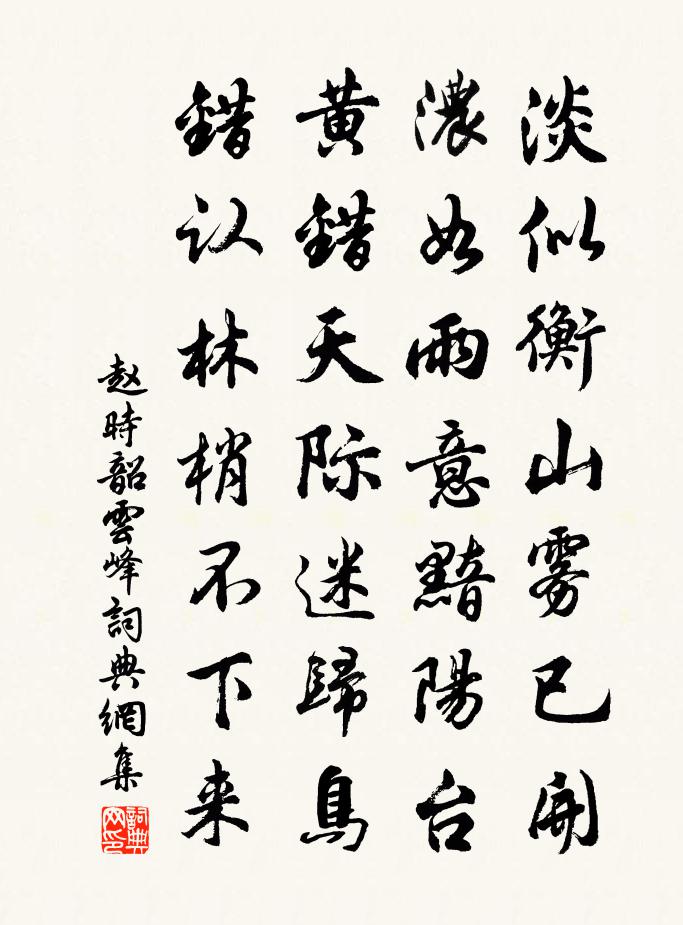 淡似衡山雾已開
濃如雨意黯陽台
黄錯天际迷歸鳥
錯认林梢不下来
赵時韶雲峰詞典網集
詞典网印